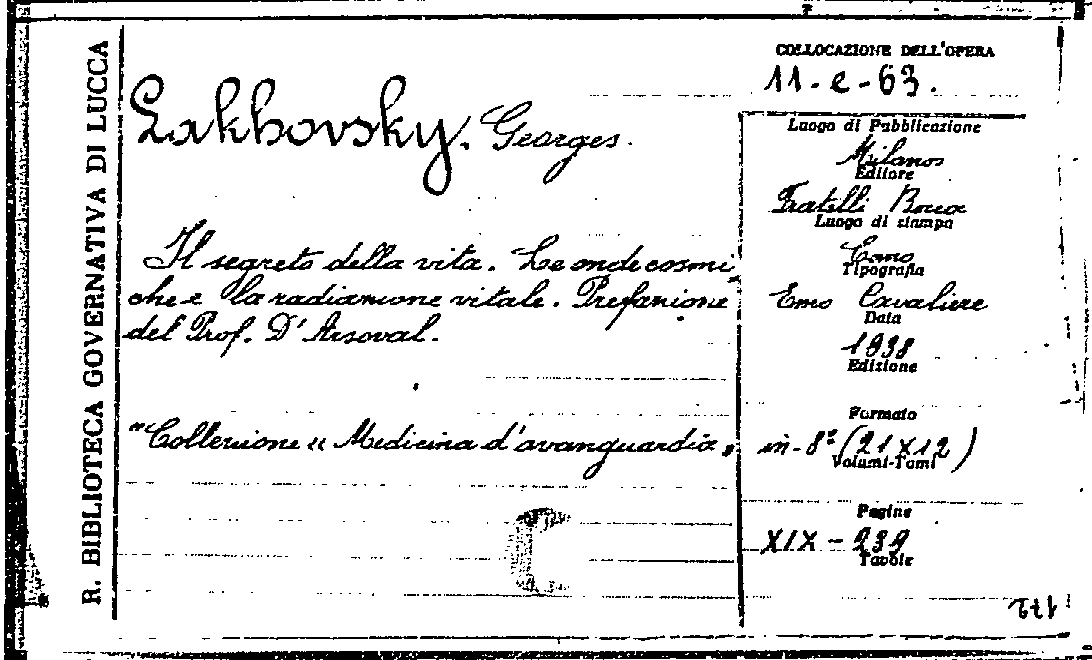 R. BIBLIOTECA GOVERNATIVA DI LUCCA
Lakhovsky. Georges.
Il segreto della vita. Le onde cosmi
che e la radiazione vitale. Prefazione
del Prof. D'Arsoval.
"Collezione « Medicina d'avanguardia „
COLLOCAZIONE DELL'OPERA
11-e-63.
Luogo di Pubblicazione
Milano
Editore
Fratelli Bocca
Luogo di stampa
Tipografia
Emo Cavaliere
Data
1938
Edizione
Formato
in-8º (21 x 12)
Volumi-Tomi
Pagine
XIX - 239
Tavole